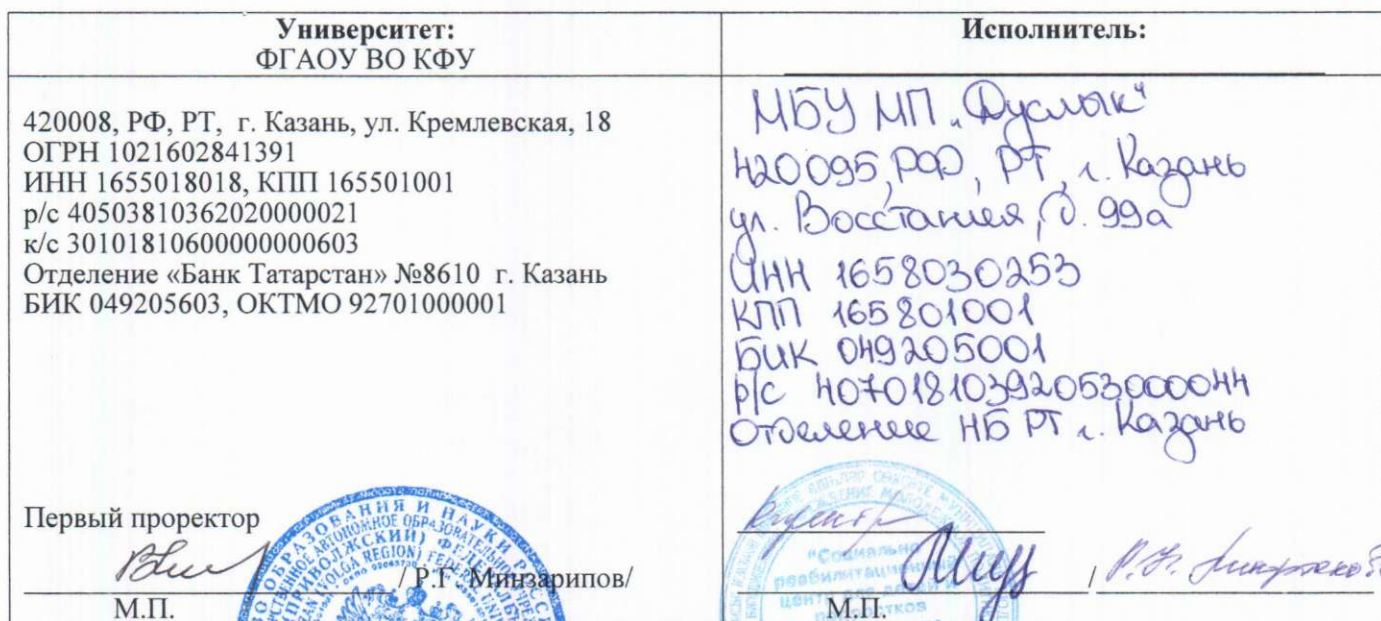 Университет:
ФГАОУ ВО КФУ
420008, РФ, РТ, г. Казань, ул. Кремлевская, 18
ОГРН 1021602841391
ИНН 1655018018, КПП 165501001
р/с 40503810362020000021
к/с 30101810600000000603
Отделение «Банк Татарстан» №8610 г. Казань
БИК 049205603, ОКТМО 92701000001
Первый проректор
/ Р.Г. Минзарипов/
М.П.
Исполнитель:
МБУ МП „Дуслык“
420095, РФ, РТ, г. Казань
ул. Восстания, д. 99а
ИНН 1658030253
КПП 165801001
БИК 049205001
р/с 40701810392053000044
Отделение НБ РТ г. Казань
Директор
/ Р.
М.П.
"Социально
реабилитационный
центр для детей и
подростков